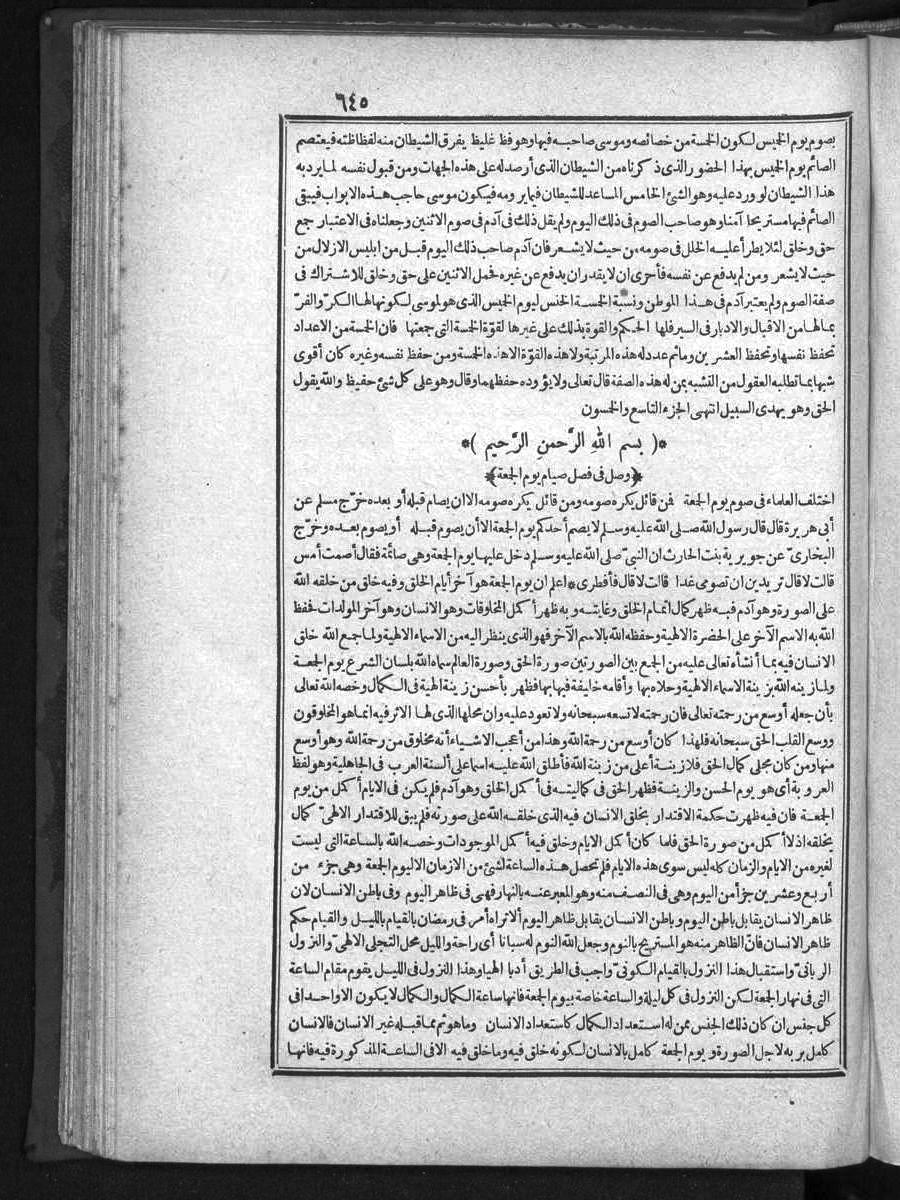 ٦٤٥
بصوم يوم الخميس لكون الخمسة من خصائصه وموسى صاحبه فيها وهو فظ غليظ يفرق الشيطان منه لفظاظته فيعتصم
الصائم يوم الخميس بهذا الحضور الذى ذكرناه من الشيطان الذى أرصد له على هذه الجهات ومن قبول نفسه لما يرد به
هذا الشيطان لو ورد عليه وهو الشئ الخامس المساعد للشيطان فيما يرومه فيكون موسى حاجب هذه الابواب فيبقى
الصائم فيها مستريحا آمنا وهو صاحب الصوم فى ذلك اليوم ولم يقل ذلك فى آدم فى صوم الاثنين وجعلناه فى الاعتبار جمع
حق وخلق لئلا يطرأ عليه الخلل فى صومه من حيث لا يشعر فان آدم صاحب ذلك اليوم قبل من ابليس الازلال من
حيث لا يشعر ومن لم يدفع عن نفسه فأحرى ان لا يقدر ان يدفع عن غيره فحمل الاثنين على حق وخلق للاشتراك فى
صفة الصوم ولم يعتبر آدم فى هذا الموطن ونسبة الخمسة الخنس ليوم الخميس الذى هو لموسى لكونها لها الكرّ والفرّ
بما لها من الاقبال والادبار فى السير فلها الحكم والقوة بذلك على غيرها لقوّة الخمسة التى جمعتها فان الخمسة من الاعداد
تحفظ نفسها وتحفظ العشرين وما ثم عدد له هذه المرتبة ولا هذه القوّة الا هذه الخمسة ومن حفظ نفسه وغيره كان أقوى
شبها بما تطلبه العقول من التشبه بمن له هذه الصفة قال تعالى ولا يؤوده حفظهما وقال وهو على كل شئ حفيظ والله يقول
الحق وهو يهدى السبيل انتهى الجزء التاسع والخمسون
*( بسم اللهِ الرَّحمنِ الرَّحِيم )*
﴿وصل فى فصل صيام يوم الجمعة﴾
اختلف العلماء فى صوم يوم الجمعة فمن قائل يكره صومه ومن قائل يكره صومه الا ان يصام قبله أو بعده خرّج مسلم عن
أبى هريرة قال قال رسول الله صلى الله عليه وسلم لا يصم أحدكم يوم الجمعة الا أن يصوم قبله أو يصوم بعده وخرّج
البخارىّ عن جويرية بنت الحارث ان النبىّ صلى الله عليه وسلم دخل عليها يوم الجمعة وهى صائمة فقال أصمت أمس
قالت لا قال تريدين ان تصومى غدا قالت لا قال فأفطرى * اعلم ان يوم الجمعة هو آخر أيام الخلق وفيه خلق من خلقه الله
على الصورة وهو آدم فبه ظهر كمال اتمام الخلق وغايته وبه ظهر أكمل المخلوقات وهو الانسان وهو آخر المولدات فحفظ
الله به الاسم الآخر على الحضرة الالهية وحفظه الله بالاسم الآخر فهو الذى ينظر اليه من الاسماء الالهية ولما جمع الله خلق
الانسان فيه بما أنشأه تعالى عليه من الجمع بين الصورتين صورة الحق وصورة العالم سماه الله بلسان الشرع يوم الجمعة
ولما زينه الله بزينة الاسماء الالهية وحلاه بها وأقامه خليفة فيها بها فظهر بأحسن زينة الهية فى الكمال وخصه الله تعالى
بأن جعله أوسع من رحمته تعالى فان رحمته لا تسعه سبحانه ولا تعود عليه وان محلها الذى لها الاثر فيه انما هو المخلوقون
ووسع القلب الحق سبحانه فلهذا كان أوسع من رحمة الله وهذا من أعجب الاشياء أنه مخلوق من رحمة الله وهو أوسع
منها ومن كان مجلى كمال الحق فلا زينة أعلى من زينة الله فأطلق الله عليه اسما على ألسنة العرب فى الجاهلية وهو لفظ
العروبة أى هو يوم الحسن والزينة فظهر الحق فى كماليته فى أكمل الخلق وهو آدم فلم يكن فى الايام أكمل من يوم
الجمعة فان فيه ظهرت حكمة الاقتدار بخلق الانسان فيه الذى خلقه الله على صورته فلم يبق للاقتدار الالهىّ كمال
يخلقه اذ لا أكمل من صورة الحق فلما كان أكمل الايام وخلق فيه أكمل الموجودات وخصه الله بالساعة التى ليست
لغيره من الايام والزمان كله ليس سوى هذه الايام فلم تحصل هذه الساعة لشئ من الازمان الا ليوم الجمعة وهى جزء من
أربع وعشرين جزأ من اليوم وهى فى النصف منه وهو المعبر عنه بالنهار فهى فى ظاهر اليوم وفى باطن الانسان لان
ظاهر الانسان يقابل باطن اليوم وباطن الانسان يقابل ظاهر اليوم ألا تراه أمر فى رمضان بالقيام بالليل والقيام حكم
ظاهر الانسان فانّ الظاهر منه هو المستريح بالنوم وجعل الله النوم له سباتا أى راحة والليل محل التجلى الالهىّ والنزول
الربانىّ واستقبال هذا النزول بالقيام الكونىّ واجب فى الطريق أدبا الهيا وهذا النزول فى الليل يقوم مقام الساعة
التى فى نهار الجمعة لكن النزول فى كل ليلة والساعة خاصة بيوم الجمعة فانها ساعة الكمال والكمال لا يكون الا واحدا فى
كل جنس ان كان ذلك الجنس ممن له استعداد الكمال كاستعداد الانسان وما هو ثم مما قبله غير الانسان فالانسان
كامل بربه لاجل الصورة ويوم الجمعة كامل بالانسان لكونه خلق فيه وما خلق فيه الا فى الساعة المذكورة فيه فانها